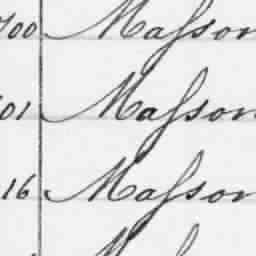 700 Maſson
01 Maſson
16 Maſson